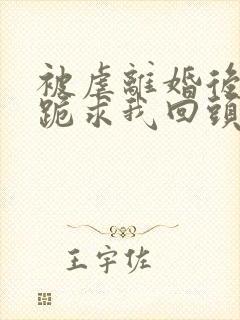 被虐離婚後
跪求我回頭
王宇佐